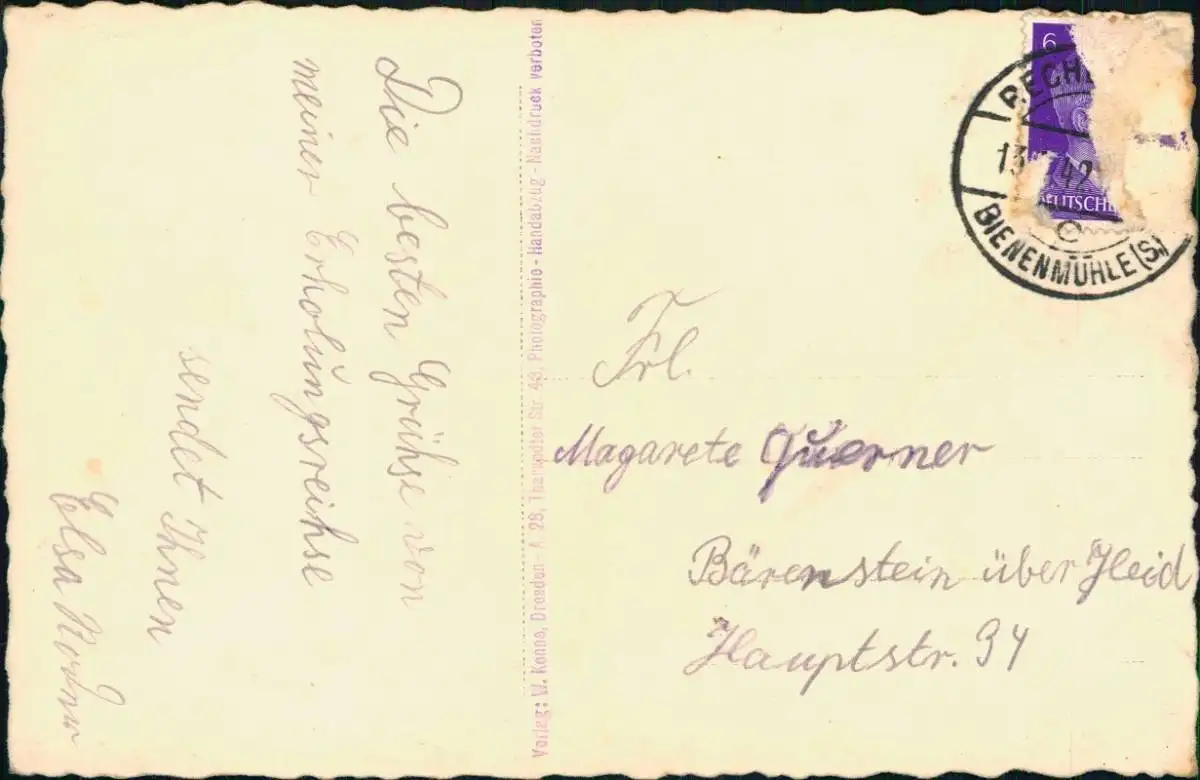 Die besten Grühse von
meiner Erholungsreihse
sendet Ihnen
Elsa
Verlag: W. Konne, Dresden-A 28, Tharandter Str. 43, Photographie - Handabzug - Nachdruck verboten
6
13 42
DEUTSCHE
c
BIENENMÜHLE (S)
Frl.
Magarete Querner
Bärenstein über Heid
Hauptstr. 94